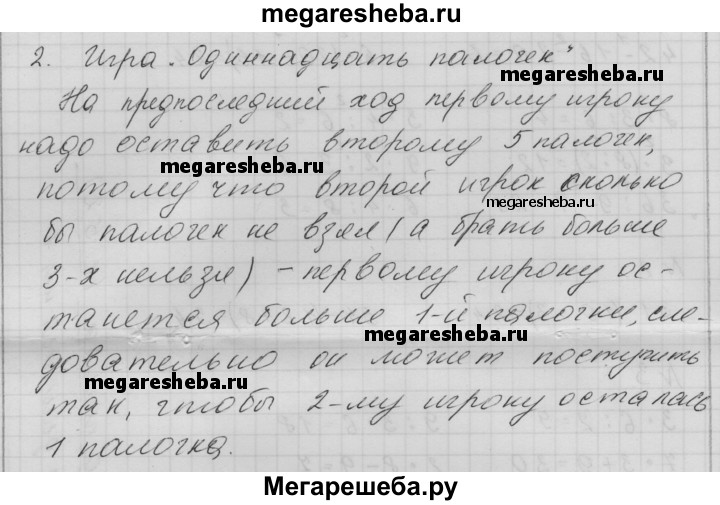 megaresheba.ru
2. Игра „Одиннадцать палочек"
megaresheba.ru
На предпоследний ход первому игроку
надо оставить второму 5 палочек,
megaresheba.ru
потому что второй игрок сколько
megaresheba.ru
бы палочек не взял (а брать больше
3-х нельзя) – первому игроку ос-
танется больше 1-й палочки, сле-
megaresheba.ru
довательно он может поступить
megaresheba.ru
так, чтобы 2-му игроку осталась
1 палочка.
Мегарешеба.ру